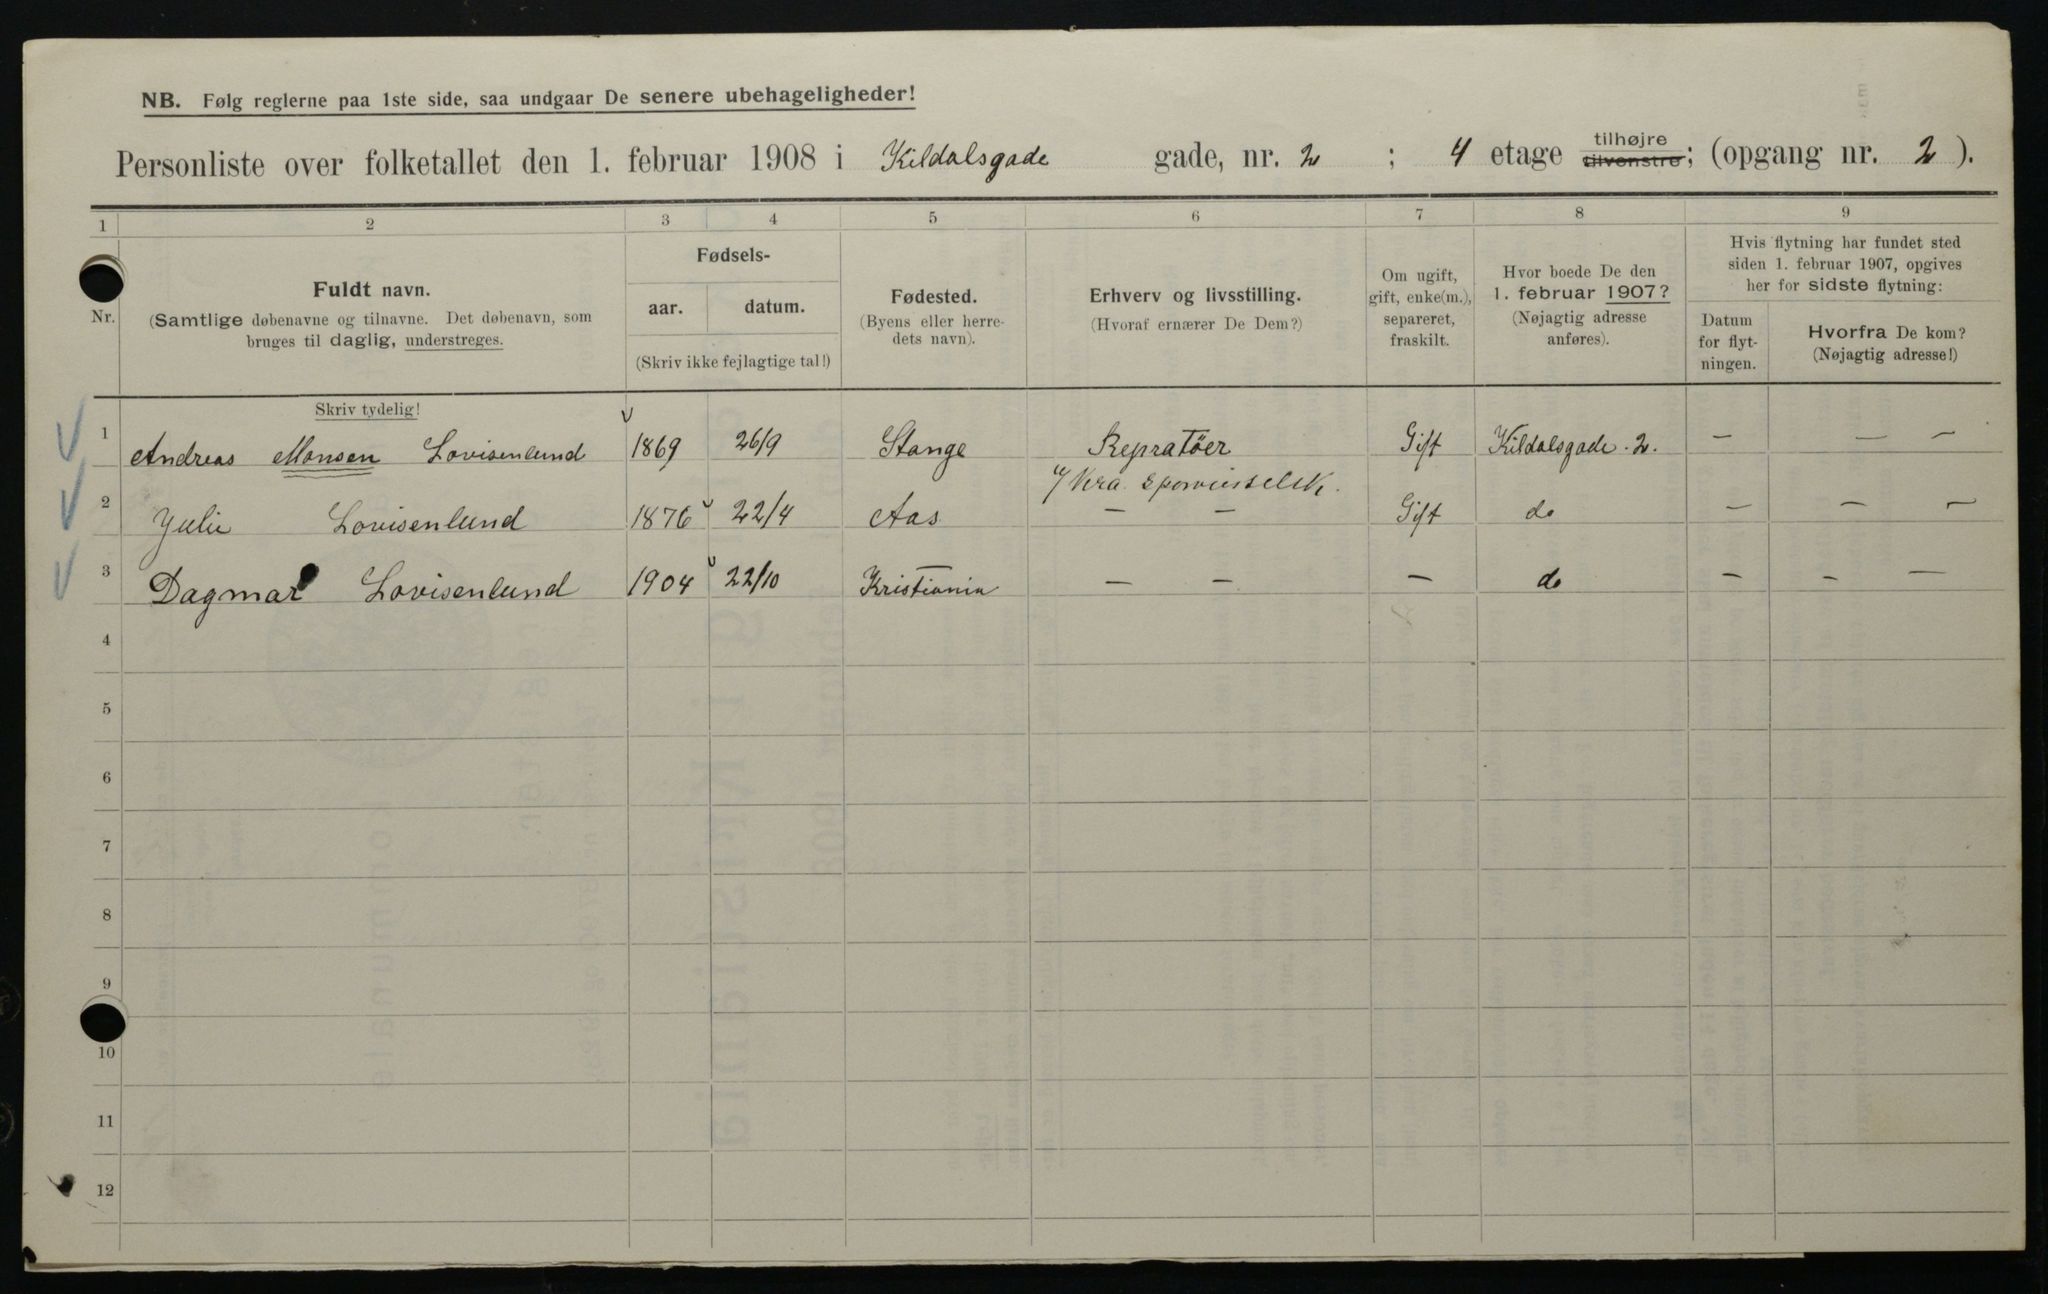 NB. Følg reglerne paa 1ste side, saa undgaar De senere ubehageligheder!
Personliste over folketallet den 1. februar 1908 i Kildalsgade gade, nr. 2 ; 4 etage tilhøjre tilvenstre; (opgang nr. 2).
1 2 3 4 5 6 7 8 9
Nr.
Fuldt navn.
(Samtlige døbenavne og tilnavne. Det døbenavn, som
bruges til daglig, understreges.
Skriv tydelig!
Fødsels-
aar. datum.
(Skriv ikke fejlagtige tal!)
Fødested.
(Byens eller herre-
dets navn).
Erhverv og livsstilling.
(Hvoraf ernærer De Dem?)
Om ugift,
gift, enke(m.),
separeret,
fraskilt.
Hvor boede De den
1. februar 1907?
(Nøjagtig adresse
anføres).
Hvis flytning har fundet sted
siden 1. februar 1907, opgives
her for sidste flytning:
Datum
for flyt-
ningen.
Hvorfra De kom?
(Nøjagtig adresse!)
1 Andreas Monsen Lovisenlund 1869 26/9 Stange Repratöer Gift Kildalsgade 2. — — —
v/ Kra. Sporveisselsk.
2 Julie Lovisenlund 1876 22/4 Aas — — Gift do — — —
3 Dagmar Lovisenlund 1904 22/10 Kristiania — — — do — — —
4
5
6
7
8
9
10
11
12